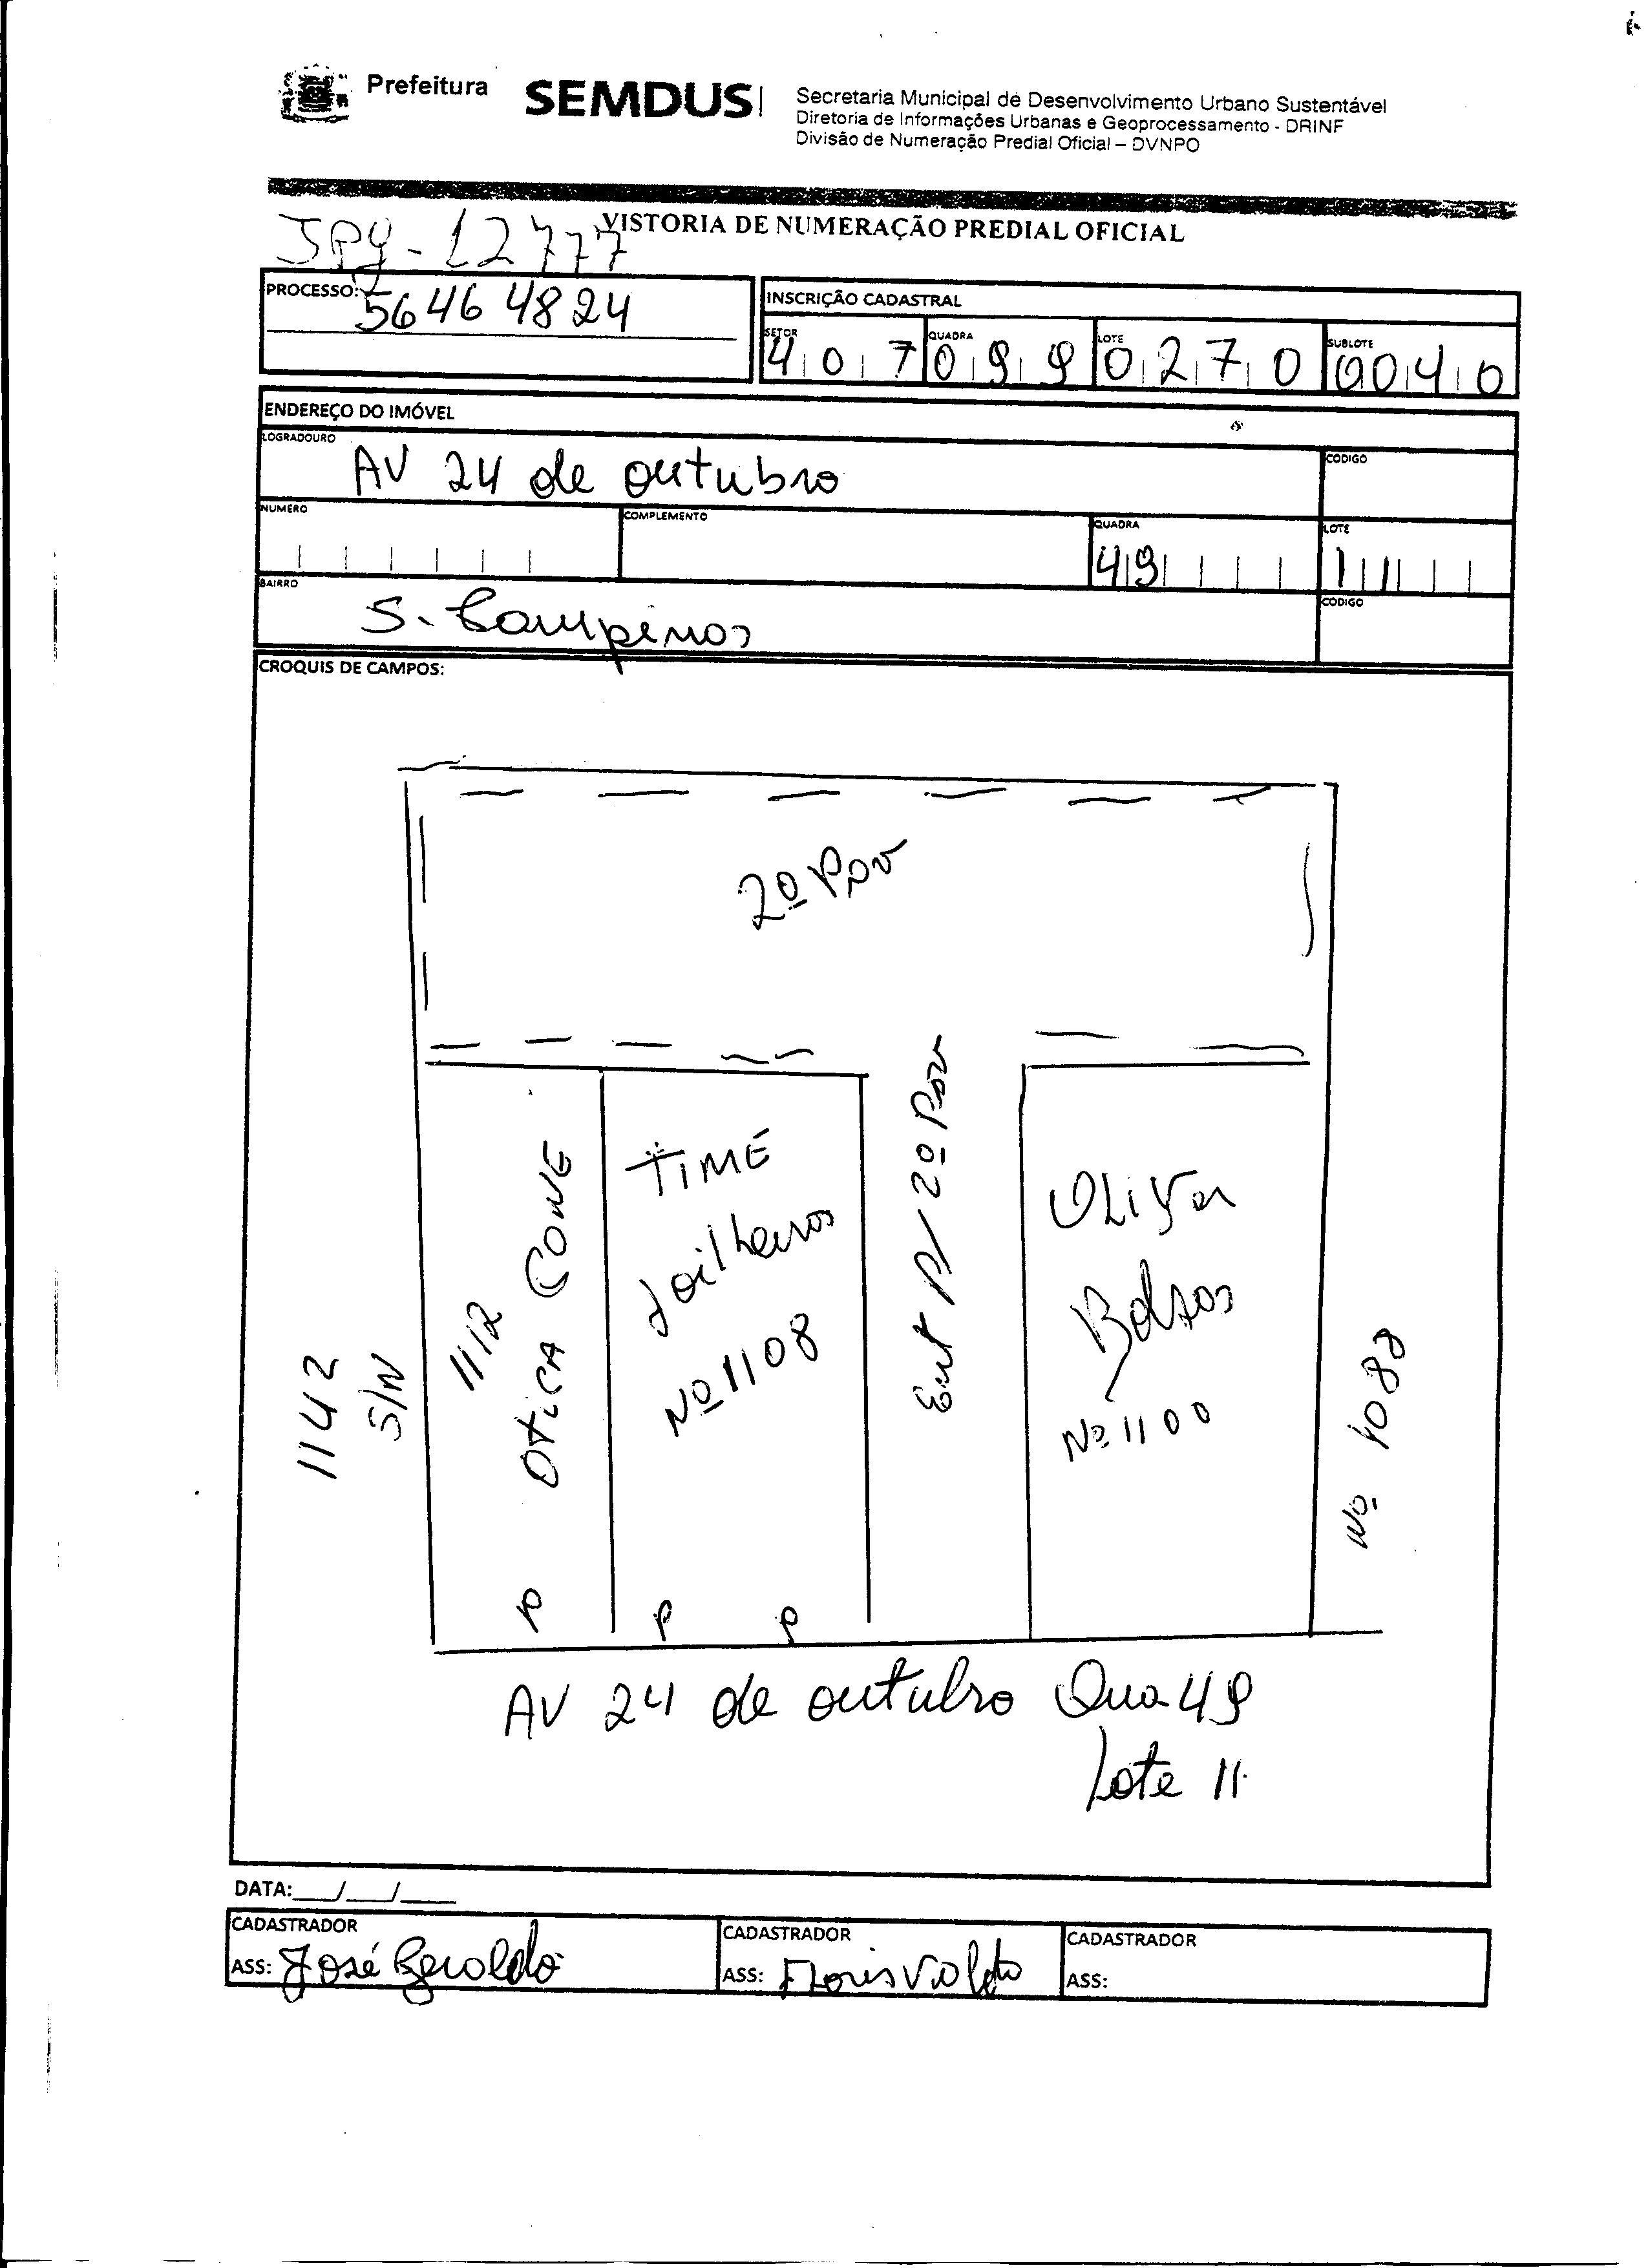 Prefeitura
SEMDUS
Secretaria Municipal de Desenvolvimento Urbano Sustentável
Diretoria de Informações Urbanas e Geoprocessamento - DRINF
Divisão de Numeração Predial Oficial – DVNPO
VISTORIA DE NUMERAÇÃO PREDIAL OFICIAL
JPG-12777
PROCESSO: 56464824
INSCRIÇÃO CADASTRAL
SETOR QUADRA LOTE SUBLOTE
407 099 0270 0040
ENDEREÇO DO IMÓVEL
LOGRADOURO CÓDIGO
AV 24 de outubro
NUMERO COMPLEMENTO QUADRA LOTE
49 11
BAIRRO CÓDIGO
S. Campinas
CROQUIS DE CAMPOS:
2º Pav
1142
S/N
1112
OtiCA CONE
TIME
Joilheiros
Nº 1108
Ent P/ 2º Pav
Bolsas
Nº 1100
Nº 1088
P P P
AV 24 de outubro Qua 49
Lote 11
DATA:___/___/____
CADASTRADOR CADASTRADOR CADASTRADOR
ASS: José Geraldo ASS: Florisvaldo ASS: